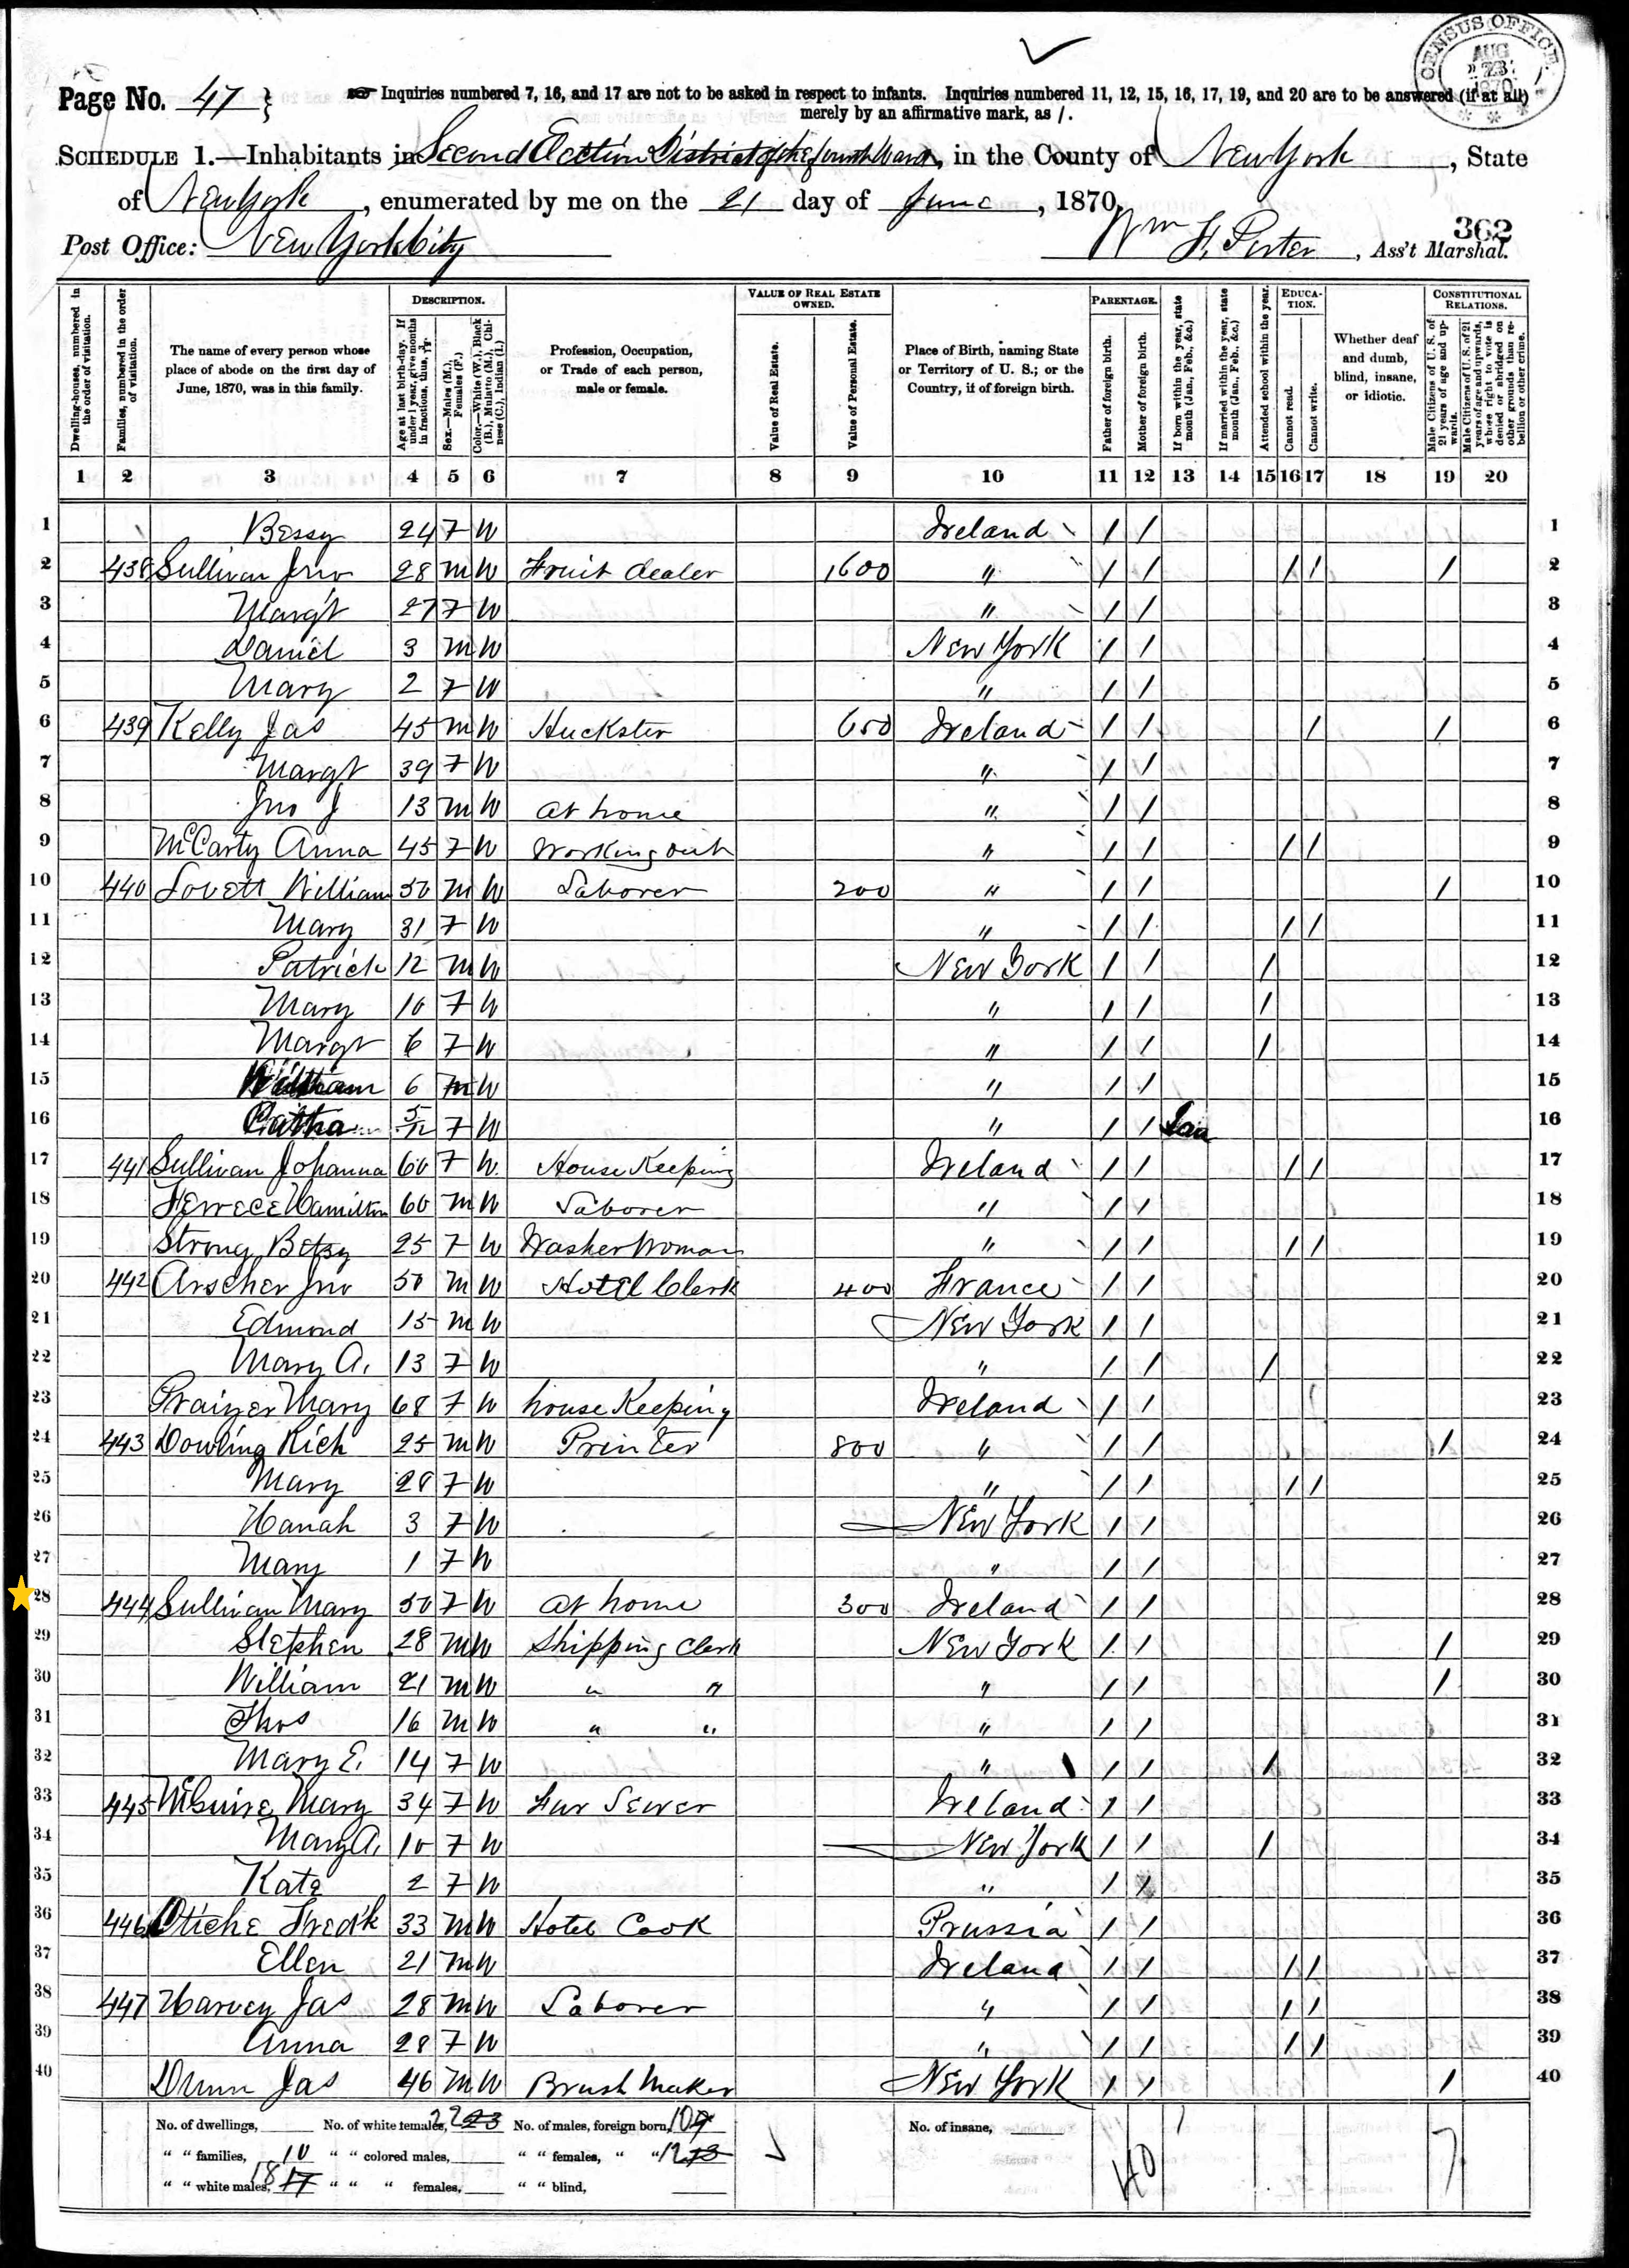 CENSUS OFFICE. AUG 23 1870
Page No. 47 Inquiries numbered 7, 16, and 17 are not to be asked in respect to infants. Inquiries numbered 11, 12, 15, 16, 17, 19, and 20 are to be answered (if at all)
merely by an affirmative mark, as /.
SCHEDULE 1.—Inhabitants in Second Election District of the fourth Ward, in the County of New York, State
of New York, enumerated by me on the 21 day of June, 1870.
362
Post Office: New York City Wm F. Porter, Ass't Marshal.
Dwelling-houses, numbered in the order of visitation.
Families, numbered in the order of visitation.
The name of every person whose place of abode on the first day of June, 1870, was in this family.
DESCRIPTION.
Age at last birth-day. If under 1 year, give months in fractions, thus, 3/12.
Sex.—Males (M.), Females (F.)
Color.—White (W.), Black (B.), Mulatto (M.), Chinese (C.), Indian (I.)
Profession, Occupation, or Trade of each person, male or female.
VALUE OF REAL ESTATE OWNED.
Value of Real Estate.
Value of Personal Estate.
Place of Birth, naming State or Territory of U. S.; or the Country, if of foreign birth.
PARENTAGE.
Father of foreign birth.
Mother of foreign birth.
If born within the year, state month (Jan., Feb., &c.)
If married within the year, state month (Jan., Feb., &c.)
Attended school within the year.
EDUCATION.
Cannot read.
Cannot write.
Whether deaf and dumb, blind, insane, or idiotic.
CONSTITUTIONAL RELATIONS.
Male Citizens of U. S. of 21 years of age and upwards.
Male Citizens of U. S. of 21 years of age and upwards, whose right to vote is denied or abridged on other grounds than rebellion or other crime.
1 2 3 4 5 6 7 8 9 10 11 12 13 14 15 16 17 18 19 20
1 Bessy 24 F W Ireland / / 1
2 438 Sullivan Jno 28 M W Fruit dealer 1600 " / / / / / 2
3 Margt 27 F W " / / 3
4 Daniel 3 M W New York / / 4
5 Mary 2 F W " / / 5
6 439 Kelly Jas 45 M W Huckster 650 Ireland / / / / 6
7 Margt 39 F W " / / 7
8 Jno J 13 M W at home " / / 8
9 McCarty Anna 45 F W Working out " / / / / 9
10 440 Lovett William 50 M W Laborer 200 " / / / 10
11 Mary 31 F W " / / / / 11
12 Patrick 12 M W New York / / / 12
13 Mary 10 F W " / / / 13
14 Margt 6 F W " / / / 14
15 William 6 M W " / / 15
16 Catha 5/12 F W " / / Jan 16
17 441 Sullivan Johanna 60 F W House Keeping Ireland / / / / 17
18 Hamilton 60 M W Laborer " / / 18
19 Strong Betsy 25 F W Washer Woman " / / / / 19
20 442 Arscher Jno 50 M W Hotel Clerk 400 France / / 20
21 Edmond 15 M W New York / / 21
22 Mary A. 13 F W " / / / 22
23 Mary 68 F W house Keeping Ireland / / 23
24 443 Dowling Rich 25 M W Printer 800 " / / / 24
25 Mary 28 F W " / / / / 25
26 Hanah 3 F W New York / / 26
27 Mary 1 F W " / / 27
28 444 Sullivan Mary 50 F W at home 300 Ireland / / 28
29 Stephen 28 M W Shipping Clerk New York / / / 29
30 William 21 M W " " " / / / 30
31 Thos 16 M W " " " / / 31
32 Mary E. 14 F W " / / / 32
33 445 McGuire Mary 34 F W Fur Sewer Ireland / / 33
34 Mary A. 10 F W New York / / / 34
35 Kate 2 F W " / / 35
36 446 Fredk 33 M W Hotel Cook Prussia / / 36
37 Ellen 21 M W Ireland / / / / 37
38 447 Harvey Jas 28 M W Laborer " / / / / 38
39 Anna 28 F W " / / / / 39
40 Dunn Jas 46 M W Brush Maker New York / / / 40
No. of dwellings, No. of white females, 22 23 No. of males, foreign born, 10 No. of insane,
" " families, 10 " " colored males, " " females, " " 12 13 40 7
" " white males, 18 17 " " " females, " " blind,